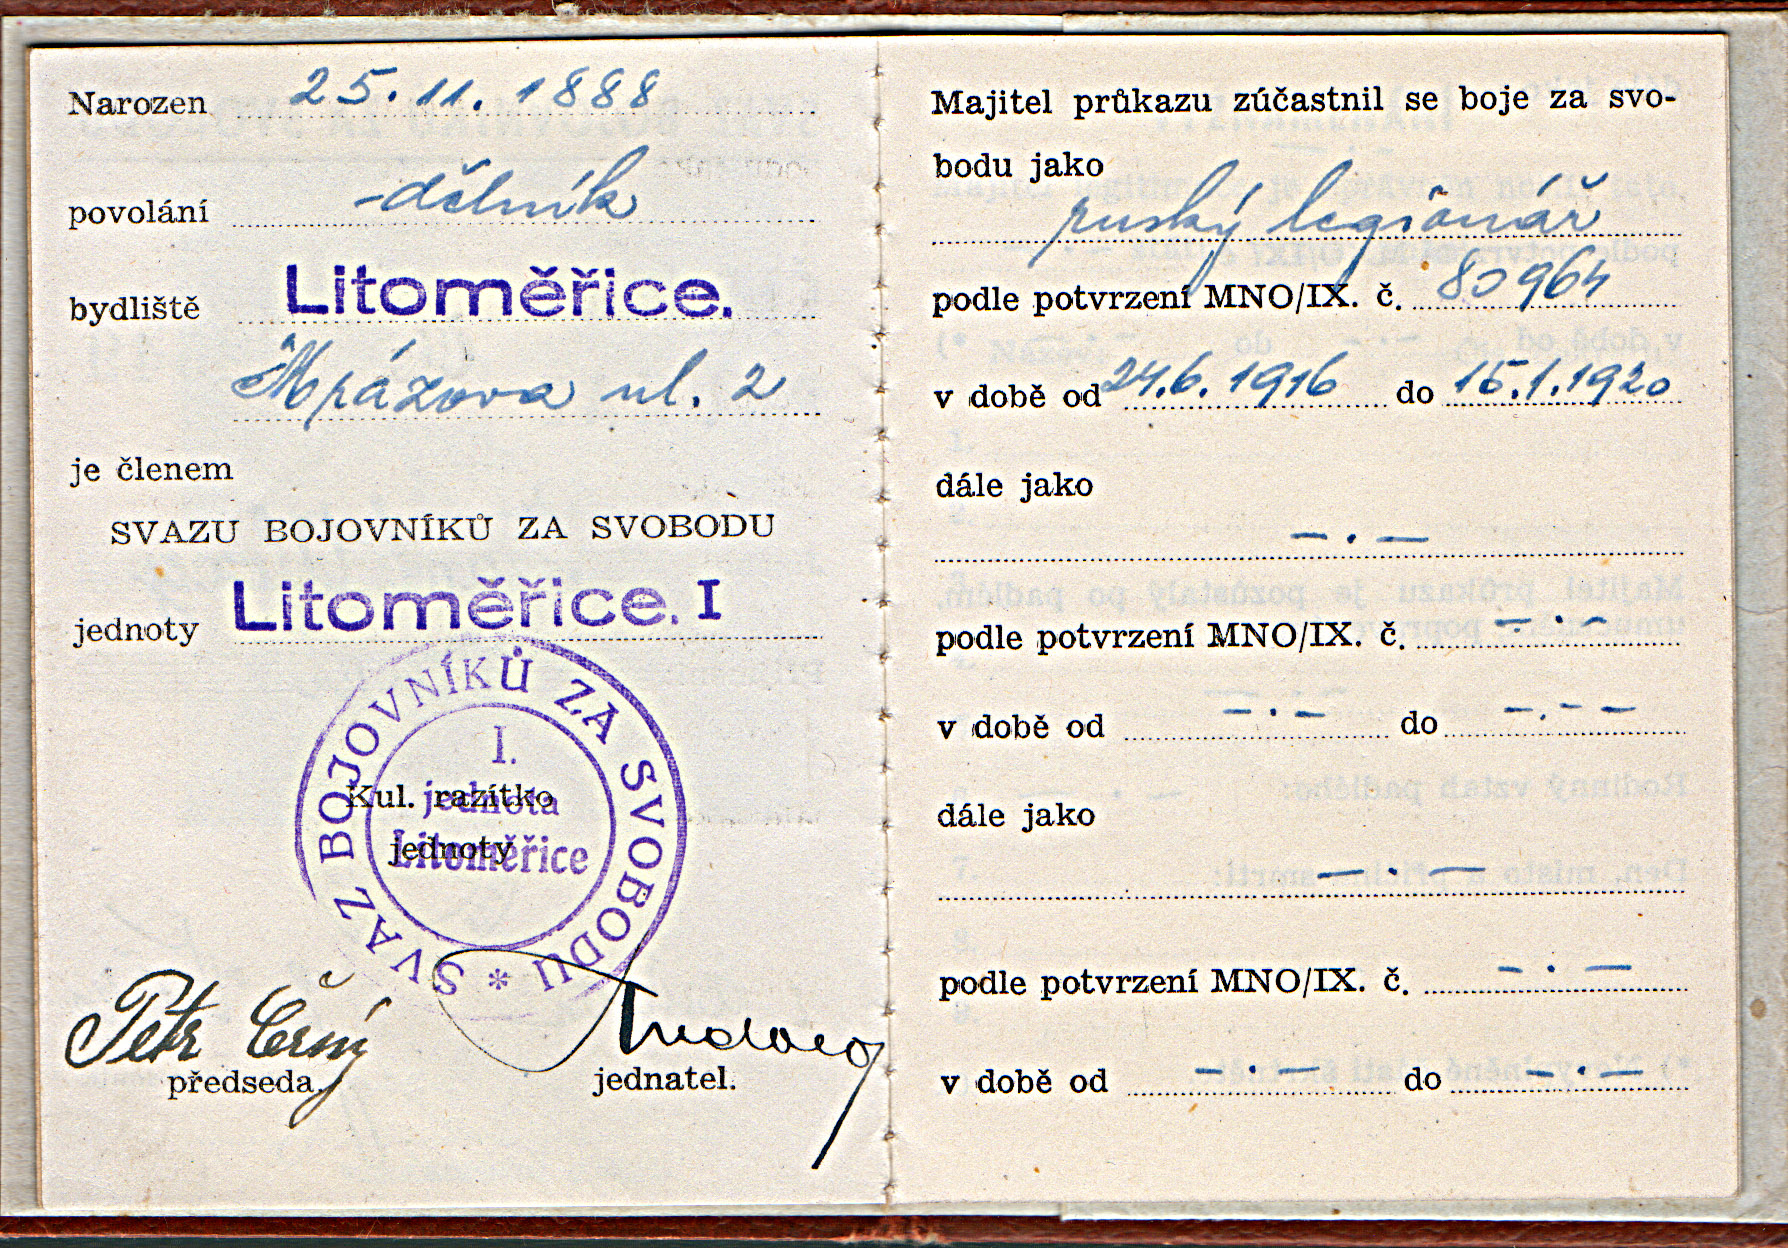 Narozen 25.11.1888
povolání -dělník
bydliště Litoměřice.
Mrázova ul. 2
je členem
SVAZU BOJOVNÍKŮ ZA SVOBODU
jednoty Litoměřice. I
SVAZ BOJOVNÍKŮ ZA SVOBODU *
I.
jednota
Litoměřice
Kul. razítko
jednoty
Petr Černý
předseda.
jednatel.
Majitel průkazu zúčastnil se boje za svo-
bodu jako
ruský legionář
podle potvrzení MNO/IX. č. 80964
v době od 24.6.1916 do 15.1.1920
dále jako
— . —
podle potvrzení MNO/IX. č. — . —
v době od — . — do — . — —
dále jako
— . —
podle potvrzení MNO/IX. č. — . —
v době od — . — do — . —